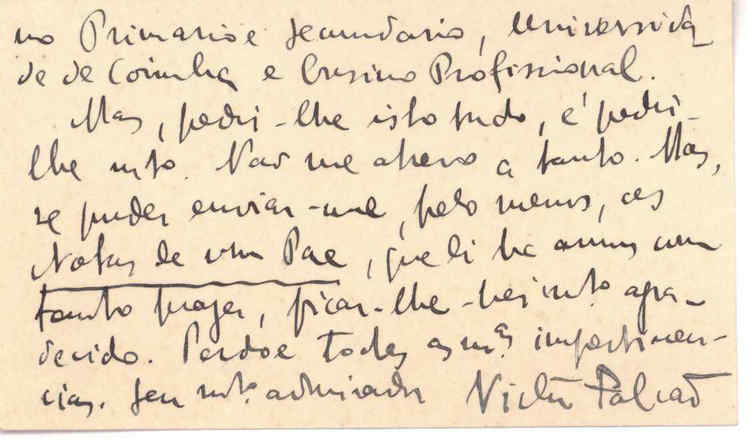 no Primario e Secundario, Universida
de de Coimbra e Ensino Profissional.
Mas, pedir-lhe isto tudo, é pedir-
lhe mto. Não me atrevo a tanto. Mas,
se puder enviar-me, pelo menos, as
Notas de um Pae, que li ha annos com
tanto prazer, ficar-lhe-hei mto. agra-
decido. Perdoe todas as mas. impertinen-
cias. Seu mto. admirador Victor